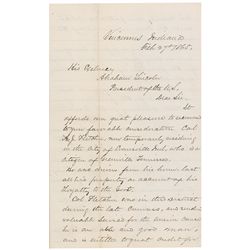 Vincennes Indiana
Feb 27th 1865.
His Excellency
Abraham Lincoln
President of the U.S.
Dear Sir
It
affords me great pleasure to recommend
to your favorable consideration Col
A. J. Fletcher now temporarily residing
in the City of Evansville Ind, who was a
citizen of Greenville Tennessee.
He was driven from his home & lost
all his property on account of his
loyalty to the Govt.
Col Fletcher was in this district
during the last Canvass, and rendered
valuable Service for the union cause
he is an able and good man, and
is entitled to great credit for